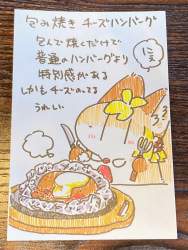 包み焼き チーズハンバーグ
包んで焼くだけで
普通のハンバーグより
特別感がある
しかもチーズのってる
うれしい